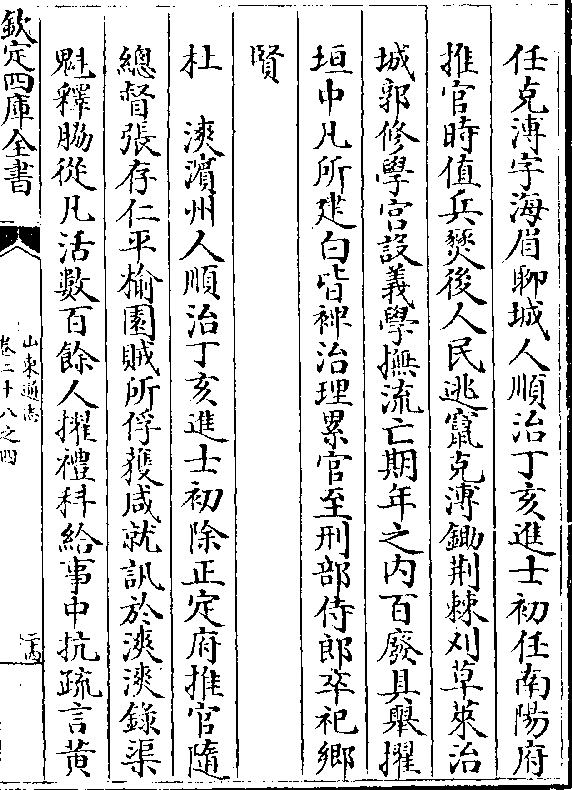 任克溥字海眉聊城人順治丁亥進士初任南陽府
推官時值兵燹後人民逃竄克溥鋤荆棘刈草萊治
城郭修學宫設義學撫流亡期年之内百廢具舉擢
垣中凡所建白皆裨治理累官至刑部侍郎卒祀鄉
賢
杜　漺濵州人順治丁亥進士初除正定府推官隨
總督張存仁平榆園賊所俘獲咸就訊於漺漺録渠
魁釋脇從凡活數百餘人擢禮科給事中抗疏言黄
欽定四庫全書
山東通志
卷二十八之四